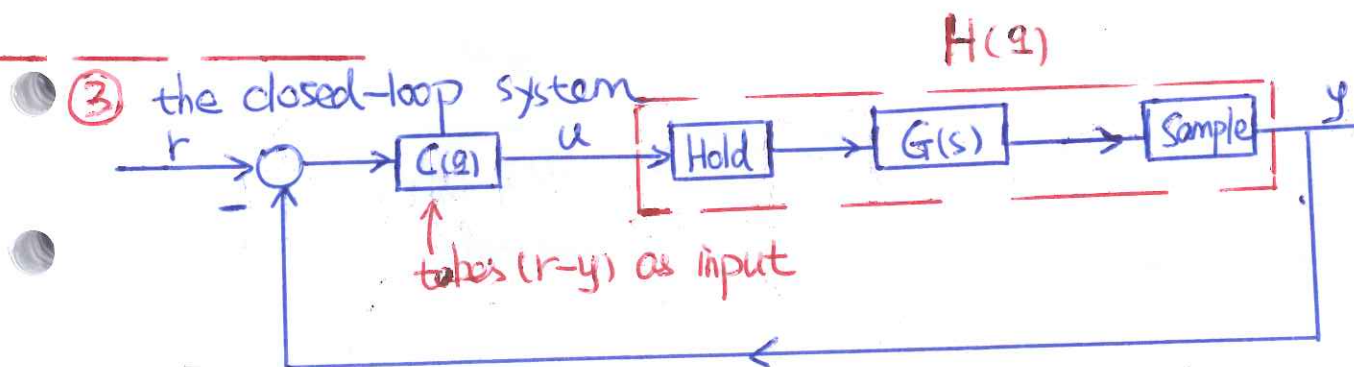 H(q)
③ the closed-loop system
r u y
C(q) Hold G(s) Sample
-
takes (r-y) as input